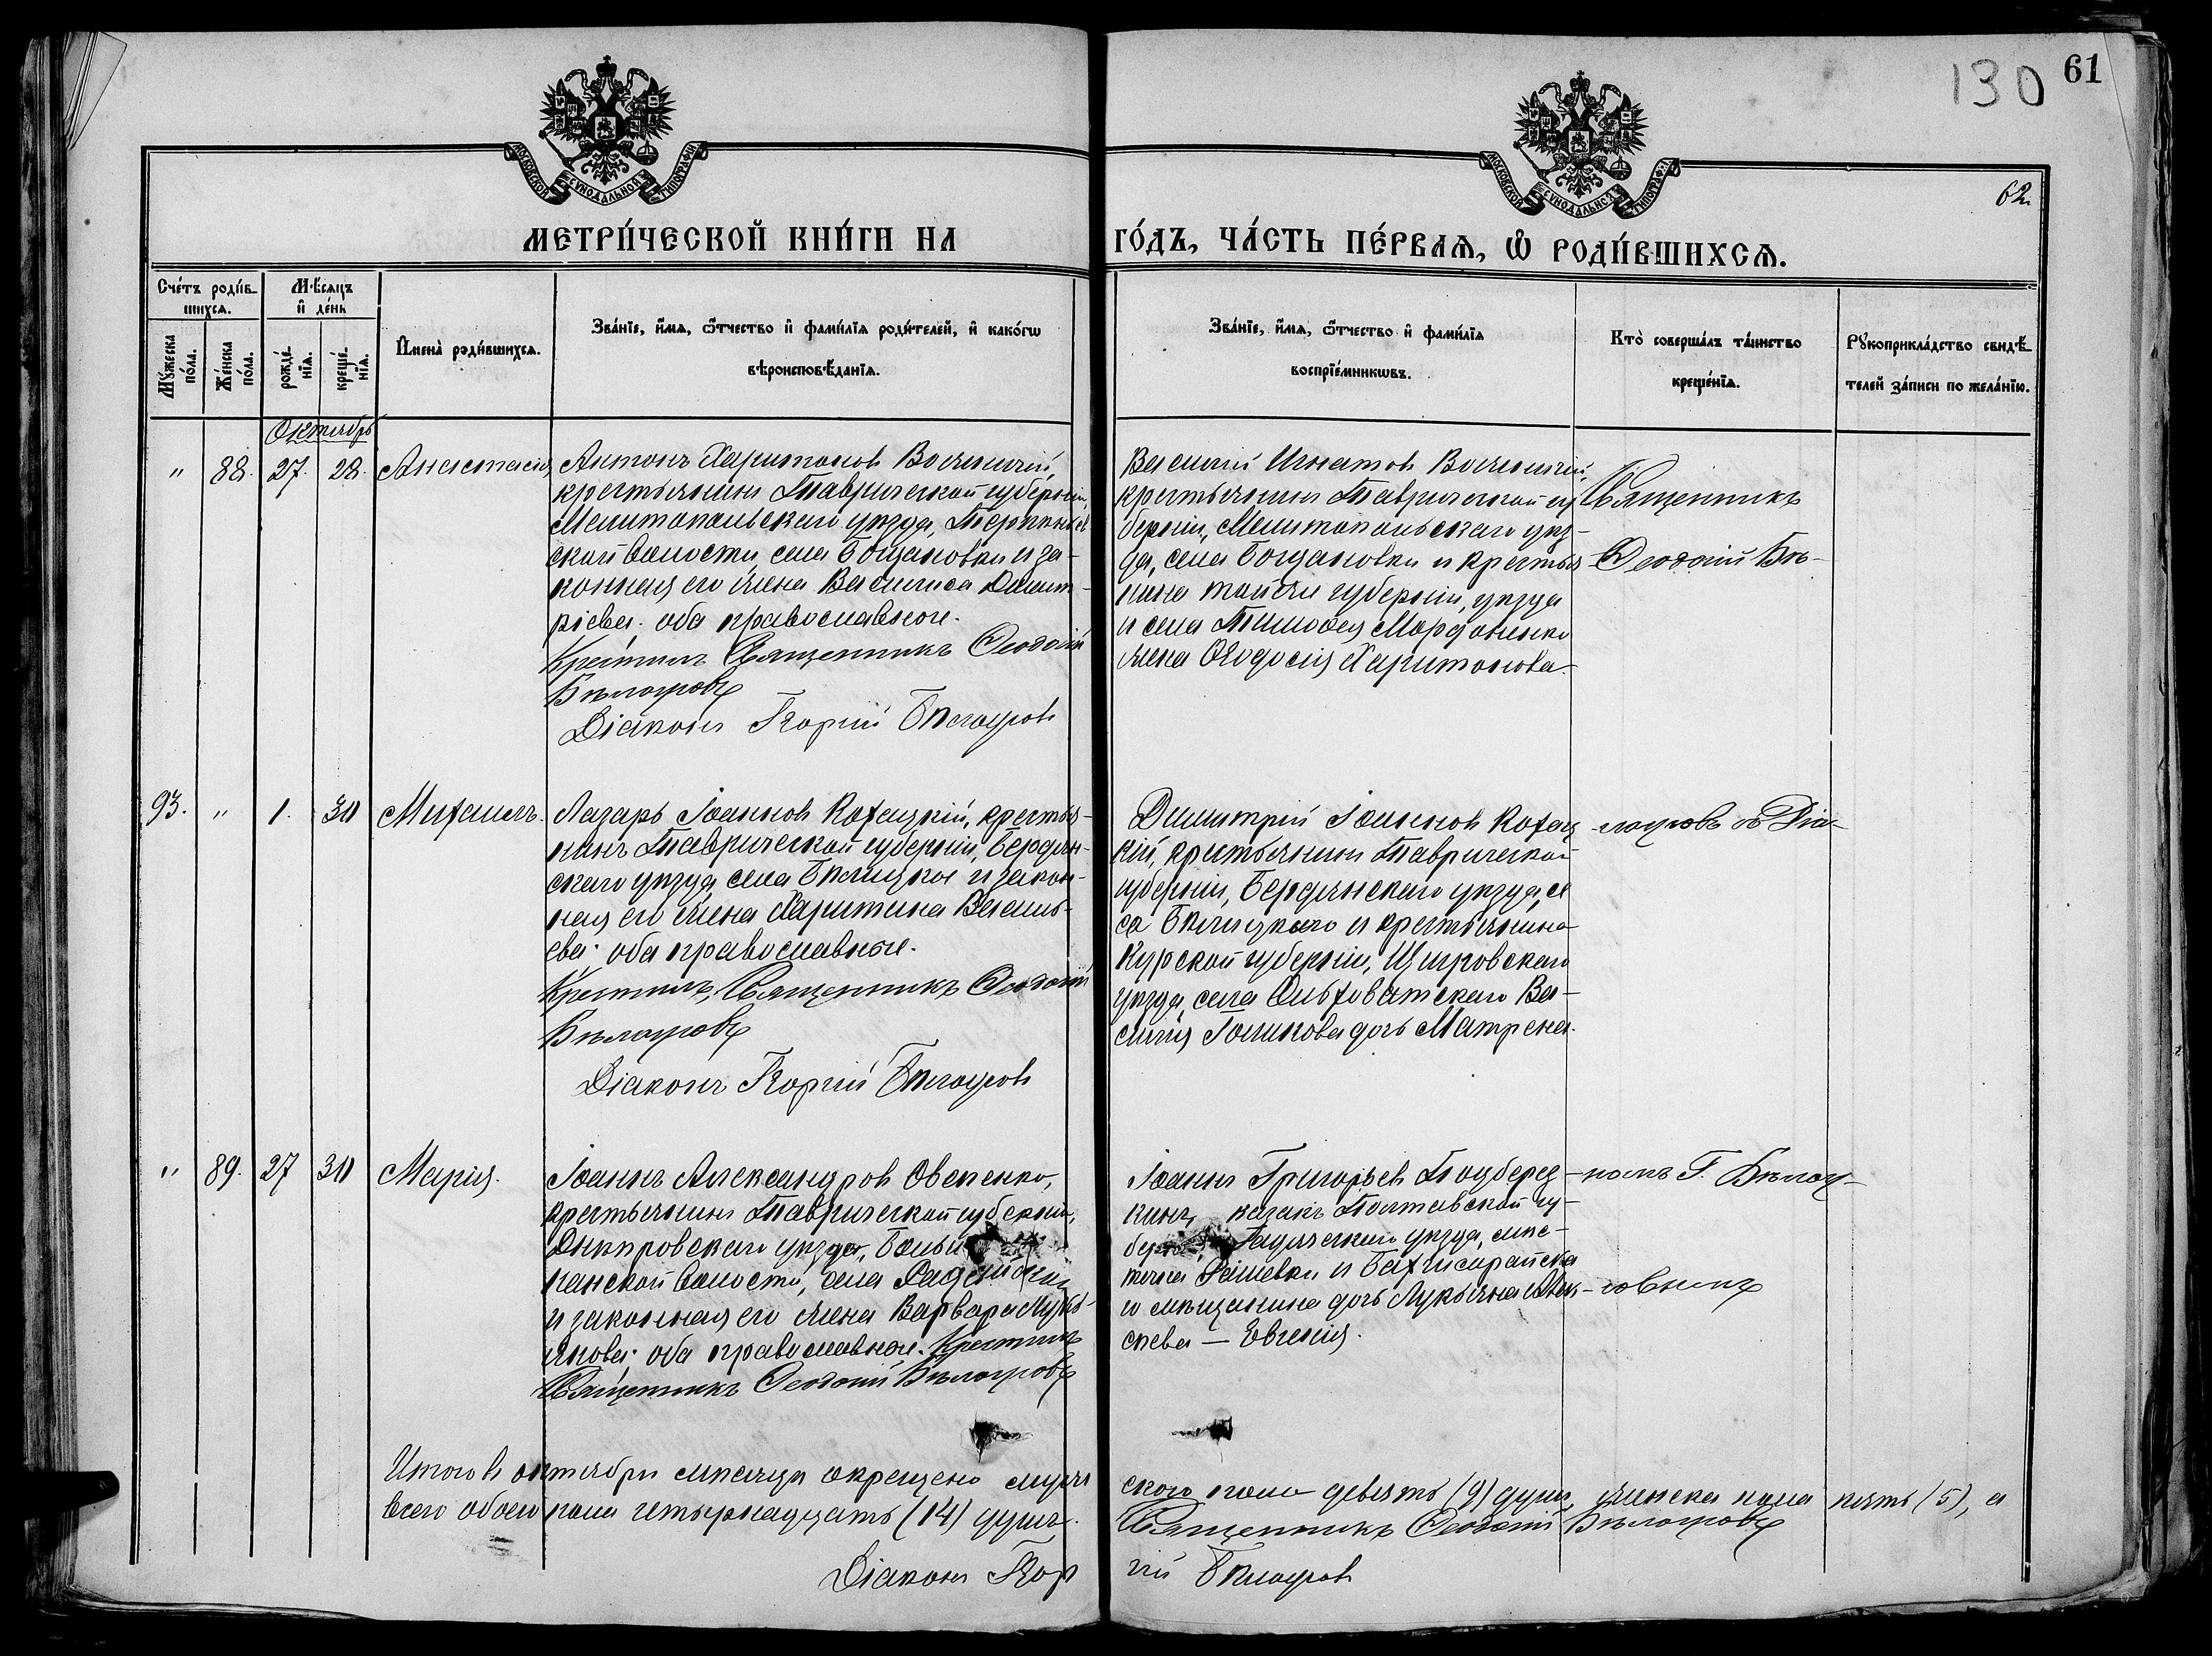 130 61
62.
МОСКОВСКОЙ СѴНОДАЛЬНОЙ ТИПОГРАФІИ
МОСКОВСКОЙ СѴНОДАЛЬНОЙ ТИПОГРАФІИ
МЕТРИ́ЧЕСКОЙ КНИ́ГИ НА ГО́ДЪ, ЧА́СТЬ ПЕ́РВАѦ, Ѡ РОДИ́ВШИХСѦ.
Сче́тъ роди́в-
шихсѧ.
Мꙋ́жеска по́ла.
Же́нска по́ла.
Мѣ́сѧцъ и де́нь
рожде́-нїѧ.
креще́-нїѧ.
Имена̀ роди́вшихсѧ.
Зва́нїе, и́мѧ, ѻ́тчество и фами́лїѧ роди́телей, и како́гѡ
вѣроисповѣ́данїѧ.
Зва́нїе, и́мѧ, ѻ́тчество и фами́лїѧ
воспрїе́мникѡвъ.
Кто̀ соверша́лъ та́инство
креще́нїѧ.
Рꙋкоприкла́дство свидѣ́-
телей за́писи по жела́нїю.
Октябрь
" 88. 27. 28. Анастасія
Антонъ Харитоновъ
крестьянинъ Таврической губерніи,
Мелитопольскаго уѣзда,
ской волости, села Богдановки и за-
конная его жена Василиса Димит-
ріева. оба православные.
Крестилъ Священникъ Ѳеодосій
Бѣлоусовъ
Діаконъ Георгій Бѣлоусовъ
Василій Игнатовъ
крестьянинъ Таврической гу-
берніи, Мелитопольскаго уѣз-
да, села Богдановки и крестья-
нина той же губерніи, уѣзда
и села Тимоѳея
жена Ѳеодосія Харитонова.
Священникъ
Ѳеодосій Бѣ-
93. " 1. 30 Михаилъ.
Лазарь Іоанновъ Кохацкій, крестья-
нинъ Таврической губерніи, Бердян-
скаго уѣзда, села Бѣлицкое и закон-
ная его жена Харитина Василь-
ева. оба православные.
Крестилъ, Священникъ Ѳеодосій
Бѣлоусовъ
Діаконъ Георгій Бѣлоусовъ
Димитрій Іоанновъ Кохац-
кій, крестьянинъ Таврической
губерніи, Бердянскаго уѣзда, се
ла Бѣлицкаго и крестьянина
Курской губерніи, Щигровскаго
уѣзда, села Ольховатскаго Ва-
силія Голикова дочь Матрена.
-лоусовъ съ Діа-
" 89. 27 30 Марія.
Іоаннъ Александровъ Овсѣенко,
крестьянинъ Таврической губерніи,
Днѣпровскаго уѣзда,
панской волости, села
и законная его жена Варвара Лукь-
янова. оба православные. Крестилъ
Священникъ Ѳеодосій Бѣлоусовъ
Іоаннъ Григорьевъ Подберез-
кинъ, казакъ Полтавской гу-
Гадячскаго уѣзда, мѣс-
течка Рашевки и Бахчисарайска
го мѣщанина дочь Лукьяна Алек-
сѣева — Евгенія.
-номъ Г. Бѣлоу-
-совымъ
Итого въ октябрѣ мѣсяцѣ окрещено мужескаго пола девять (9) душъ, женска пола пять (5), а
всего обоего пола четырнадцать (14) душъ. Священникъ Ѳеодосій Бѣлоусовъ
Діаконъ Георгій Бѣлоусовъ